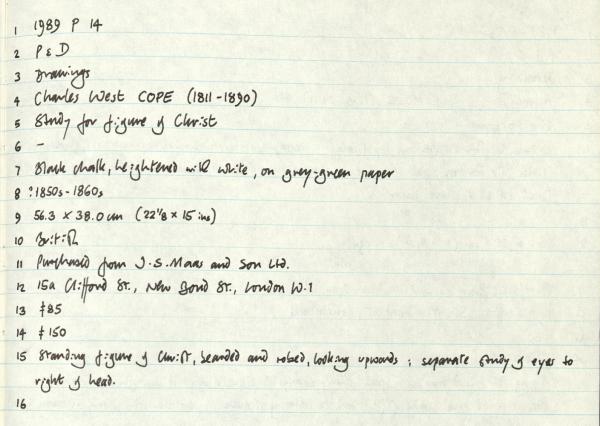 1 1989 P 14
2 P & D
3 Drawings
4 Charles West COPE (1811-1890)
5 Study for figure of Christ
6 -
7 Black chalk, heightened with white, on grey-green paper
8 ?1850s-1860s
9 56.3 x 38.0 cm (22 1/8 x 15 ins)
10 British
11 Purchased from J.S. Maas and Son Ltd.
12 15a Clifford St., New Bond St., London W.1
13 £85
14 £150
15 Standing figure of Christ, bearded and robed, looking upwards; separate study of eyes to
right of head.
16